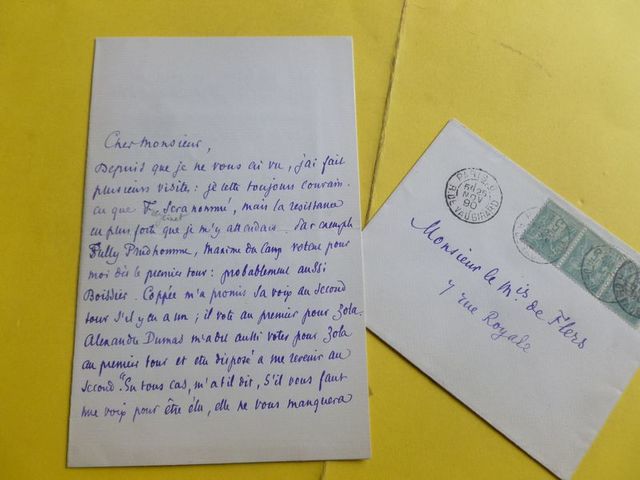 Cher Monsieur,
Depuis que je ne vous ai vu, j'ai fait
plusieurs visites : je cette toujours convain-
cu que F. sera nommé, mais la resistance
inet
en plus forte que je m'y attendais. Par exemple
Sully Prudhomme, Maxime du Camp votent pour
moi dès le premier tour : probablement aussi
Boissier. Coppée m'a promis sa voix au second
tour s'il y en a un ; il vote au premier pour Zola.
Alexandre Dumas m'a dit aussi voter pour Zola
au premier tour et être disposé a me revenir au
second. "En tous cas, m'a t'il dit, s'il vous faut
une voix pour être élu, elle ne vous manquera
PARIS
6E 25
NOV
90
R. DE VAUGIRARD
Monsieur le Mis de Flers
7 rue Royale